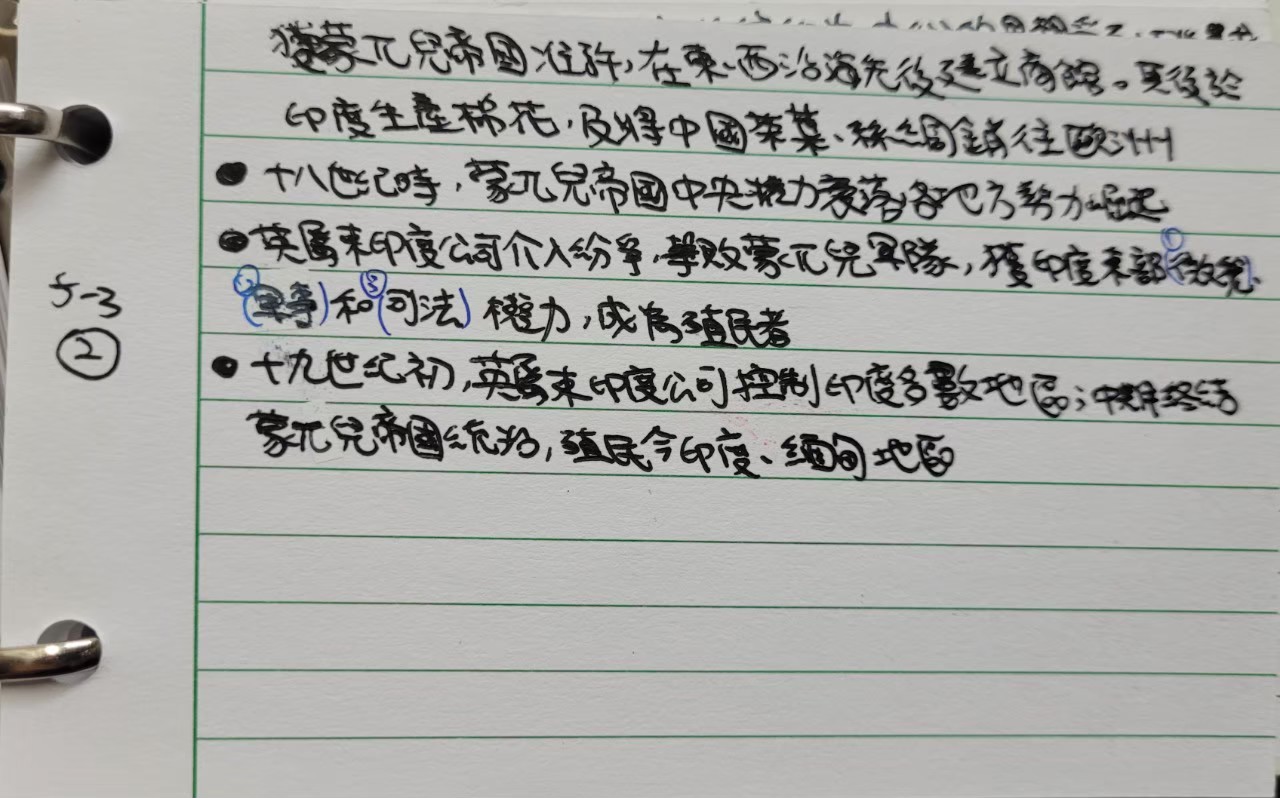 獲蒙兀兒帝國准許,在東、西沿海先後建立商館。其後於
印度生產棉花,及將中國茶葉、絲綢銷往歐洲
● 十八世紀時,蒙兀兒帝國中央權力衰落,各地方勢力崛起
● 英屬東印度公司介入紛爭,擊敗蒙兀兒軍隊,獲印度東部①(徵稅)、
5-3
②(軍事)和③(司法)權力,成為殖民者
②
● 十九世紀初,英屬東印度公司控制印度多數地區;中期終結
蒙兀兒帝國統治,殖民今印度、緬甸地區